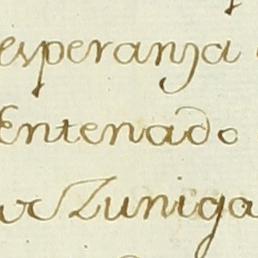 esperanza
Entenado
ar Zuniga